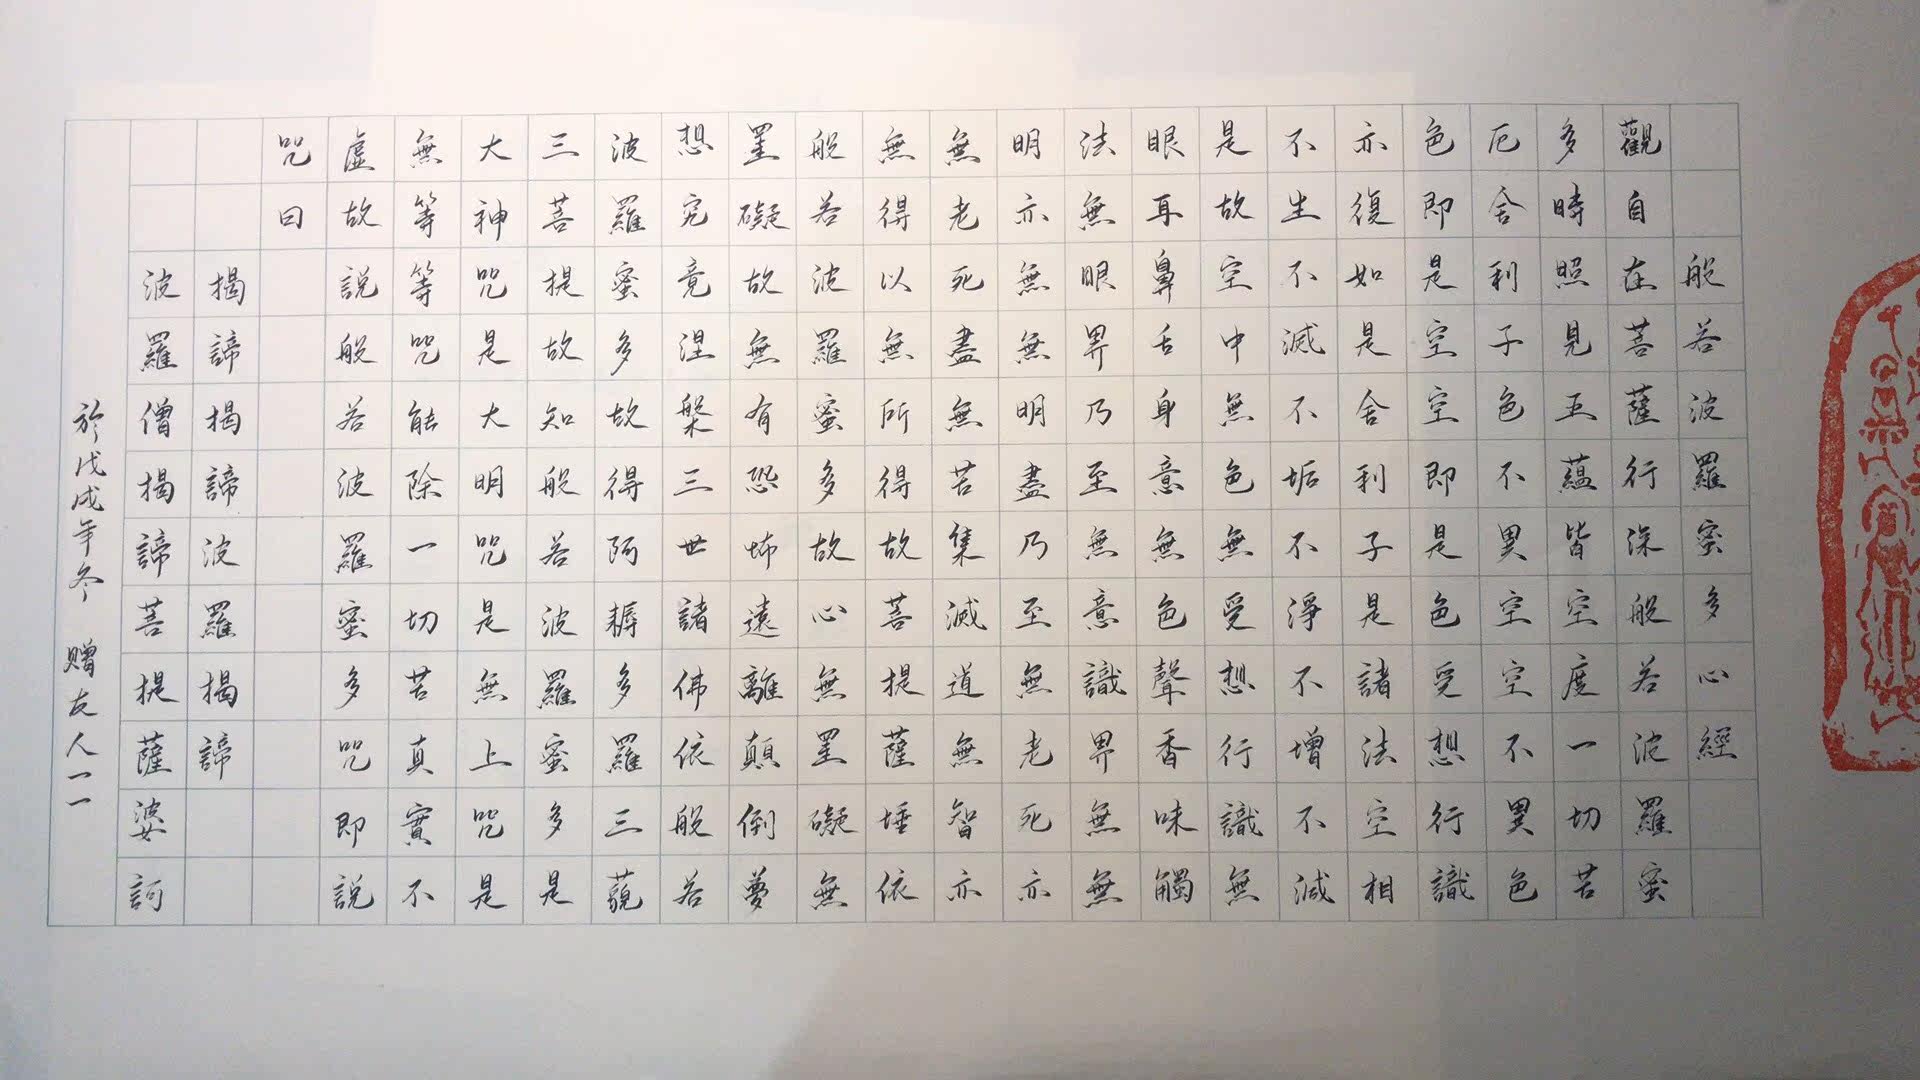 般若波羅蜜多心經
觀自在菩薩行深般若波羅蜜
多時照見五蘊皆空度一切苦
厄舍利子色不異空空不異色
色即是空空即是色受想行識
亦復如是舍利子是諸法空相
不生不滅不垢不淨不增不減
是故空中無色無受想行識無
眼耳鼻舌身意無色聲香味觸
法無眼界乃至無意識界無無
明亦無無明盡乃至無老死亦
無老死盡無苦集滅道無智亦
無得以無所得故菩提薩埵依
般若波羅蜜多故心無罣礙無
罣礙故無有恐怖遠離顛倒夢
想究竟涅槃三世諸佛依般若
波羅蜜多故得阿耨多羅三藐
三菩提故知般若波羅蜜多是
大神咒是大明咒是無上咒是
無等等咒能除一切苦真實不
虛故說般若波羅蜜多咒即說
咒曰
揭諦揭諦波羅揭諦
波羅僧揭諦菩提薩婆訶
於戊戌年冬 赠友人一一